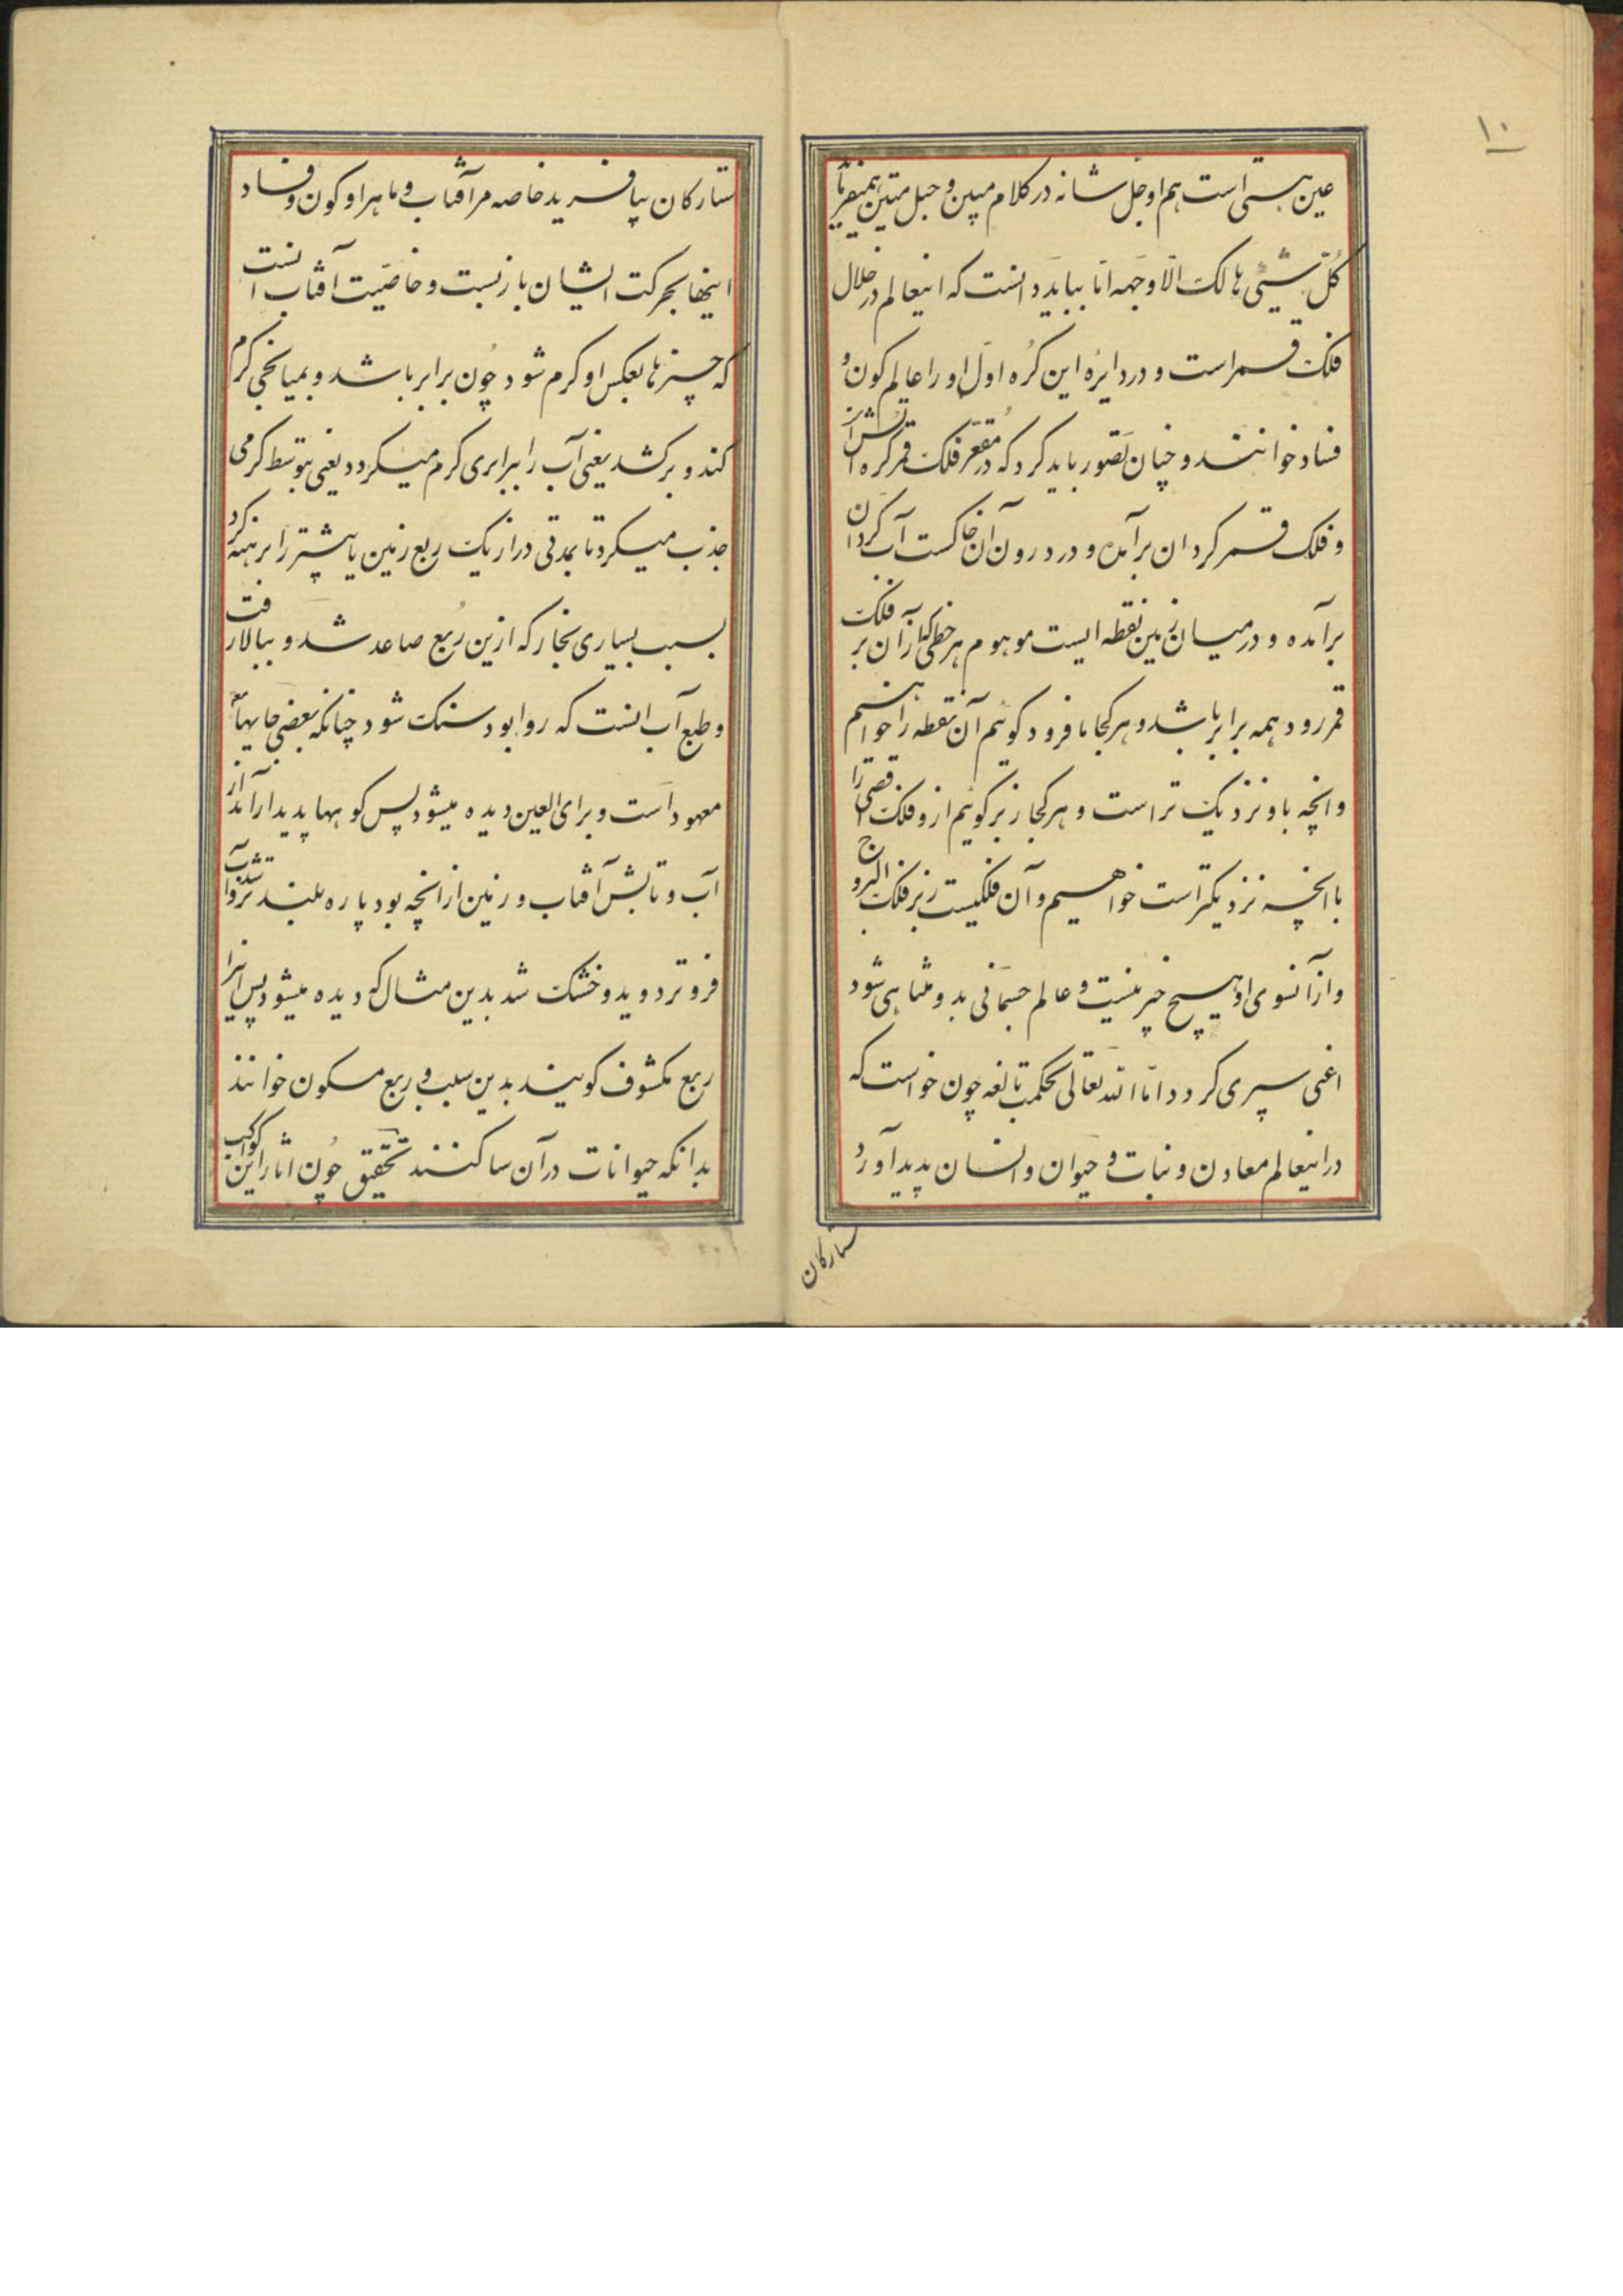 ۱۰
عین هستی است هم او جل شانه در کلام مبین و حبل متین همیفرماید
کل شیئی هالک الا وجهه اما بباید دانست که اینعالم در خلال
فلک قمر است و در دایره این کره اول او را عالم کون و
فساد خوانند و چنان تصور باید کرد که در مقعر فلک قمر کره آتش است
و فلک قمر کرد ان برآمده و در درون آن خاکست آب کرد ان
برآمده و در میان زمین نقطه ایست موهوم هر خطی که از ان بر فلک
قمر رود همه برابر باشد و هر کجا ما فرود کوئیم آن نقطه را خواهیم
و انچه باو نزدیک تر است و هر کجا زبر کوئیم ازو فلک اقصی را
با انچه نزدیکتر است خواهیم و آن فلکیست زبر فلک البروج
و از آنسوی او هیچ خبر نیست و عالم جسمانی بدو متناهی شود
اعنی سپری کردد اما الله تعالی بحکمت بالغه چون خواست که
در اینعالم معادن و نبات و حیوان و انسان پدید آورد
ستارکان
ستارکان بیافرید خاصه مر آفتاب و ماه را و کون و فساد
اینها بحرکت ایشان باز بست و خاصیت آفتاب آنست
که چیزها بعکس او کرم شود چون برابر باشد و بمیانجی کرم
کند و برکشد یعنی آب را ببرابری کرم میکرد و یعنی بتوسط کرمی
جذب میکرد تا بمدتی دراز یک ربع زمین یا بیشتر را برهنه کرد
بسبب بسیاری بخار که ازین ربع صاعد شد و ببالا رفت
و طبع آب انست که روا بود سنک شود چنانکه بعضی جایها
معهود است و برای العین دیده میشود پس کوهها پدیدار آمد از
آب و تابش آفتاب و زمین از انچه بود پاره بلندتر شد و آب
فروتر دوید و خشک شد بدین مثال که دیده میشود پس اینرا
ربع مکشوف کویند بدین سبب و ربع مسکون خوانند
بدانکه حیوانات در آن ساکنند تحقیق چون اثار این کواکب